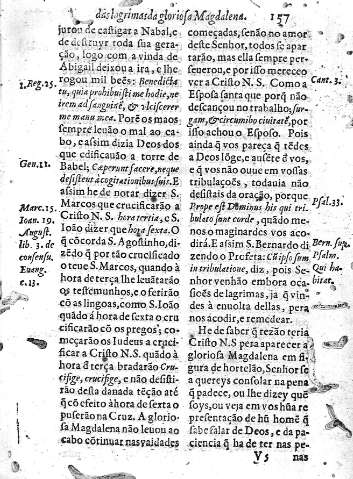 das lagrimas da gloriosa Magdalena. 157
jurou de castigar a Nabal, e
de destruyr toda sua gera-
ção, logo com a vinda de
Abigail deixou a ira, e lhe
rogou mil bẽes: Benedicta
1. Reg. 25.
tu, quia prohibuisti me hodie, ne
irem ad sanguinẽ, & vlciscerer
me manu mea. Porẽ os maos
sempre leuão o mal ao ca-
bo, e assim dizia Deos dos
que edificauão a torre de
Gen. 11.
Babel; Cæperunt facere, neque
desistent a cogitationibus suis. E
assim he de notar dizer S.
Marc. 15.
Marcos que crucificarão a
Ioan. 19.
Cristo N.S. hora tertia, e S.
August.
Ioão dizer que hora sexta. O
lib. 3. de
q̃ cõcorda S. Agostinho, di-
consensu.
zẽdo q̃ por tão crucificado
Euang.
o teue S. Marcos, quando à
c. 13.
hora de terça lhe leuãtarão
os testemunhos, e o ferirão
cõ as lingoas, como S. Ioão
quãdo á hora de sexta o cru
cificarão cõ os pregos; co-
meçarão os Iudeus a cruci-
ficar a Cristo N.S. quãdo à
hora d̃ terça bradarão Cru-
cifige, crucifige, e não desisti-
rão desta danada tẽção atẽ
q̃ cõ efeito àhora de sexta o
puserão na Cruz. A glorio-
sa Magdalena não leuou ao
cabo cõtinuar nas vaidades
começadas, senão no amor
deste Senhor, todos se apar
tarão, mas ella sempre perse-
uerou, e por isso mereceo
ver a Cristo N.S. Como a
Cant. 3.
Esposa santa que porq̃ não
descançou no trabalho; sur-
gam, & circumibo ciuitatẽ, por
isso achou o Esposo. Pois
ainda q̃ vos pareça q̃ tẽdes
a Deos lõge, e ausẽte d̃ vos,
e q̃ vos não ouue em vossas
tribulaçoẽs, todauia não
desistais da oração, porque
Psal. 33.
Prope est Dominus his qui tri-
bulato sunt corde, quãdo me-
nos o maginardes vos aco-
dirá. E assim S. Bernardo di
Bern. sup.
zendo o Profeta: Cũ ipso sum
Psalm.
in tribulatione, diz, pois Se-
Qui ha-
nhor venhão embora oca-
bitat.
siões de lagrimas, ja q̃ vin-
des à enuolta dellas, pera
nos acodir, e remedear.
He de saber q̃ rezão teria
Cristo N.S pera aparecer a
gloriosa Magdalena em fi-
gura de hortelão, Senhor se
a quereys consolar na pena
q̃ padece, ou lhe dizey quẽ
soys, ou veja em vos hũa re
presentação de hũ homẽ q̃
sabe falar de Deos, e da pa-
ciencia q̃ ha de ter nas pe-
V 5 nas